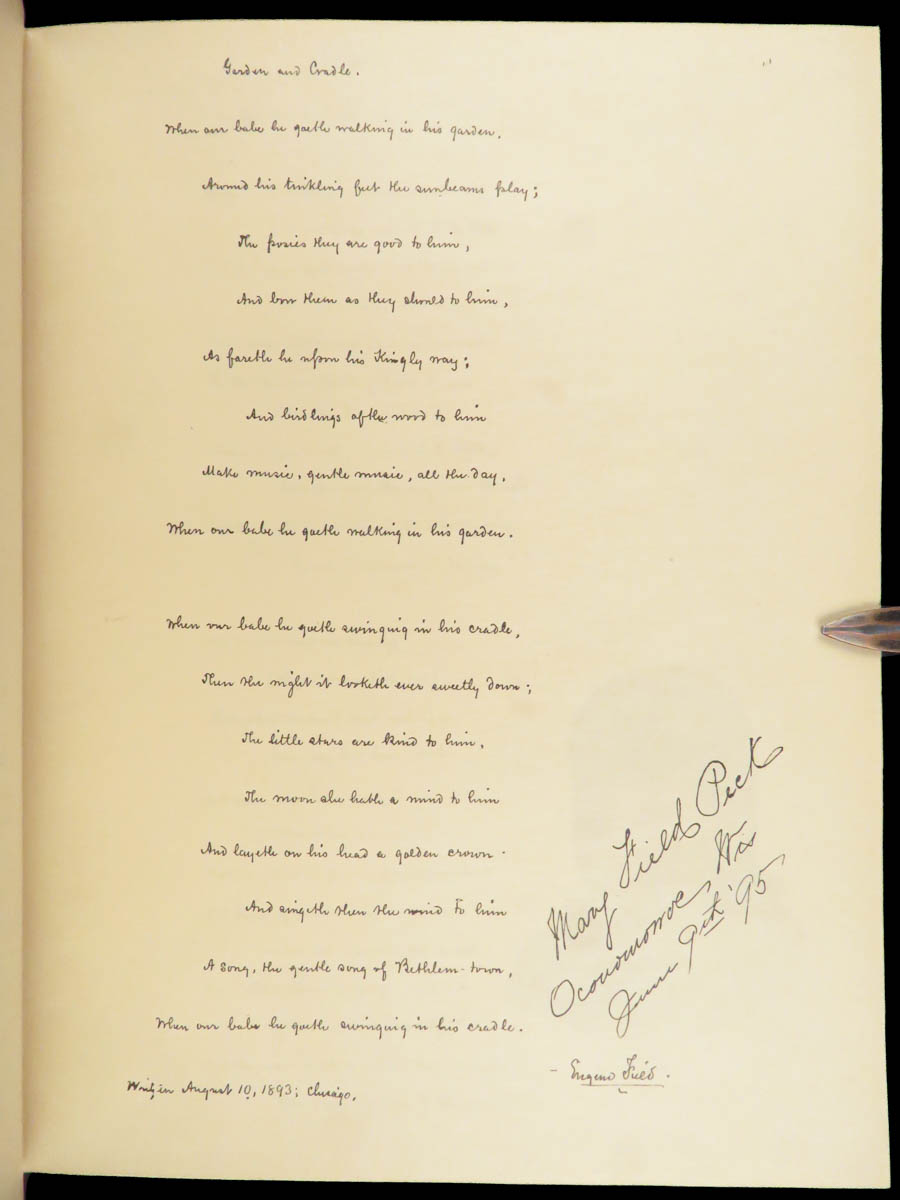 Garden and Cradle.
When our babe he goeth walking in his garden,
Around his tinkling feet the sunbeams play;
The posies they are good to him,
And bow them as they should to him,
As fareth he upon his Kingly way;
And birdlings of the wood to him
Make music, gentle music, all the day,
When our babe he goeth walking in his garden.
When our babe he goeth swinging in his cradle,
Then the night it looketh ever sweetly down;
The little stars are kind to him,
The moon she hath a mind to him
And layeth on his head a golden crown.
And singeth then the wind to him
A song, the gentle song of Bethlem-town,
When our babe he goeth swinging in his cradle.
Mary Field Peck
Oconomowoc, Wis
June 9th '95
- Eugene Field.
Written August 10, 1893; Chicago.